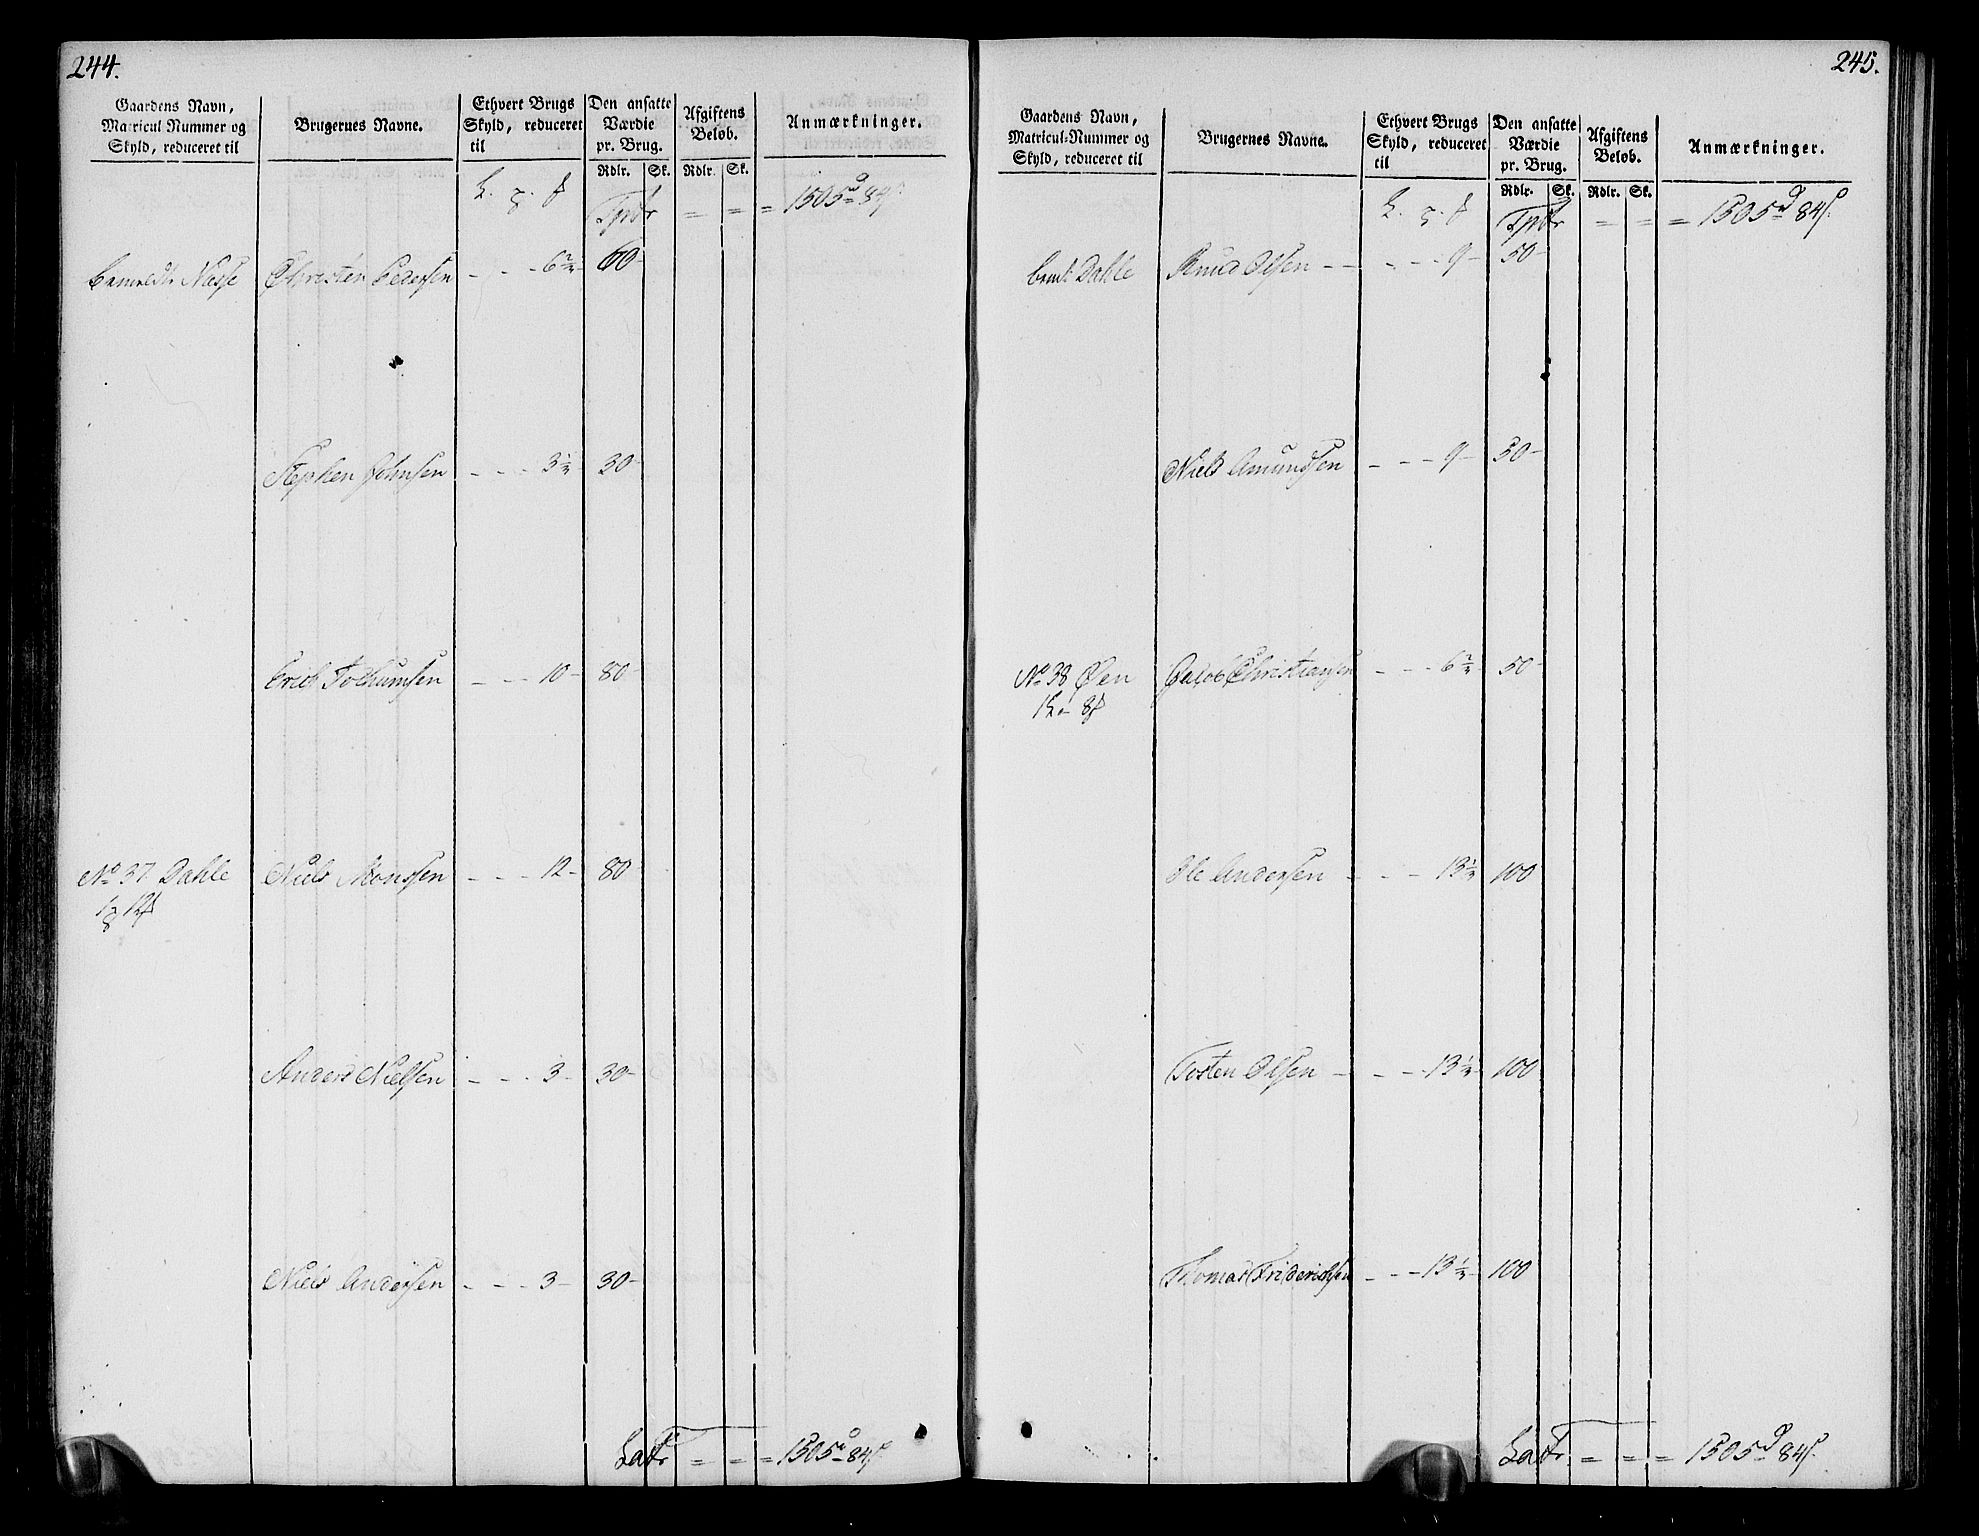 244.
Gaardens Navn, Matricul Nummer og Skyld, reduceret til
Brugernes Navne.
Ethvert Brugs Skyld, reduceret til
Den ansatte Værdie pr. Brug.
Afgiftens Beløb.
Anmærkninger.
Rdlr. Sk. Rdlr. Sk.
Tpbr = = = 1505 84
Næsse Christen Pedersen - - - 6 60
Stephen Johnsen - - - 3 30
Erich Jochumsen - - - 10 - 80
No 37 Dahle Niels Monssen - - - 12 - 80
Anders Nielsen - - - 3 - 30 -
Niels Andersen - - - 3 - 30 -
Latr = = = 1505 84
245.
Gaardens Navn, Matricul-Nummer og Skyld, reduceret til
Brugernes Navne.
Ethvert Brugs Skyld, reduceret til
Den ansatte Værdie pr. Brug.
Afgiftens Beløb.
Anmærkninger.
Rdlr. Sk. Rdlr. Sk.
Tpbr = = = 1505 84
Dahle Knud Olsen - - - 9 - 50 -
Niels Amundsen - - - 9 - 50 -
No 38 Øen Jacob Christiansen - - - 6 50 -
Ole Andersen - - - 13 100
Tosten Olsen - - - 13 100
Thomas Friderichsen - - - 13 100
Latr = = = 1505 84